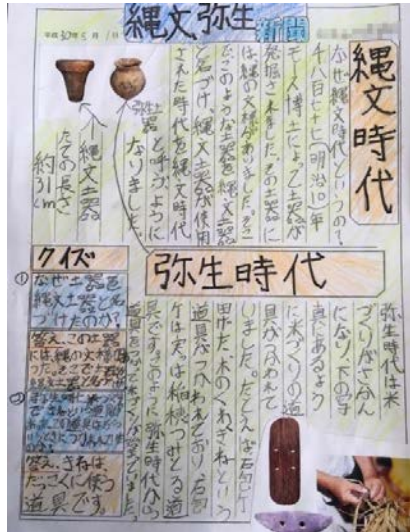 縄文、弥生新聞
平成30年5月1日
縄文時代
なぜ縄文時代というの?
千八百七十七(明治10)年
モース博士によって土器が
発掘されました。その土器に
は縄の文様がありました。そこ
でこのような土器を縄文土器
と名づけ、縄文土器が使用
された時代を縄文時代
と呼ぶように
なりました。
弥生土器
縄文土器
たての長さ
約31cm
弥生時代
弥生時代は米
づくりがさかん
になり、下の写
真にあるよう
に米づくりの道
具がつかわれて
いました。たとえば石包丁
田げた、木のくわ、きねという
道具がつかわれており、石包
丁は実った稲穂をつみとる道
具です。このように弥生時代から
道具をつかって米づくりが
クイズ
①
なぜ土器を
縄文土器と名
づけたのか?
答え、この土器
には、縄の文様が
②
答え、きねは、
だっこくに使う
道具です。